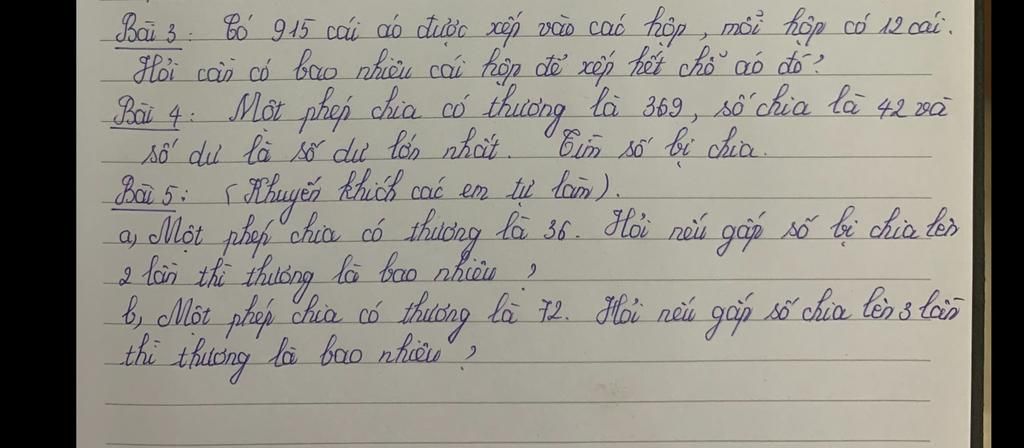 Bài 3: Có 915 cái áo được xếp vào các hộp, mỗi hộp có 12 cái.
Hỏi cần có bao nhiêu cái hộp để xếp hết chỗ áo đó?
Bài 4: Một phép chia có thương là 369, số chia là 42 và
số dư là số dư lớn nhất. Tìm số bị chia.
Bài 5: (Khuyến khích các em tự làm).
a, Một phép chia có thương là 36. Hỏi nếu gấp số bị chia lên
2 lần thì thương là bao nhiêu?
b, Một phép chia có thương là 72. Hỏi nếu gấp số chia lên 3 lần
thì thương là bao nhiêu?